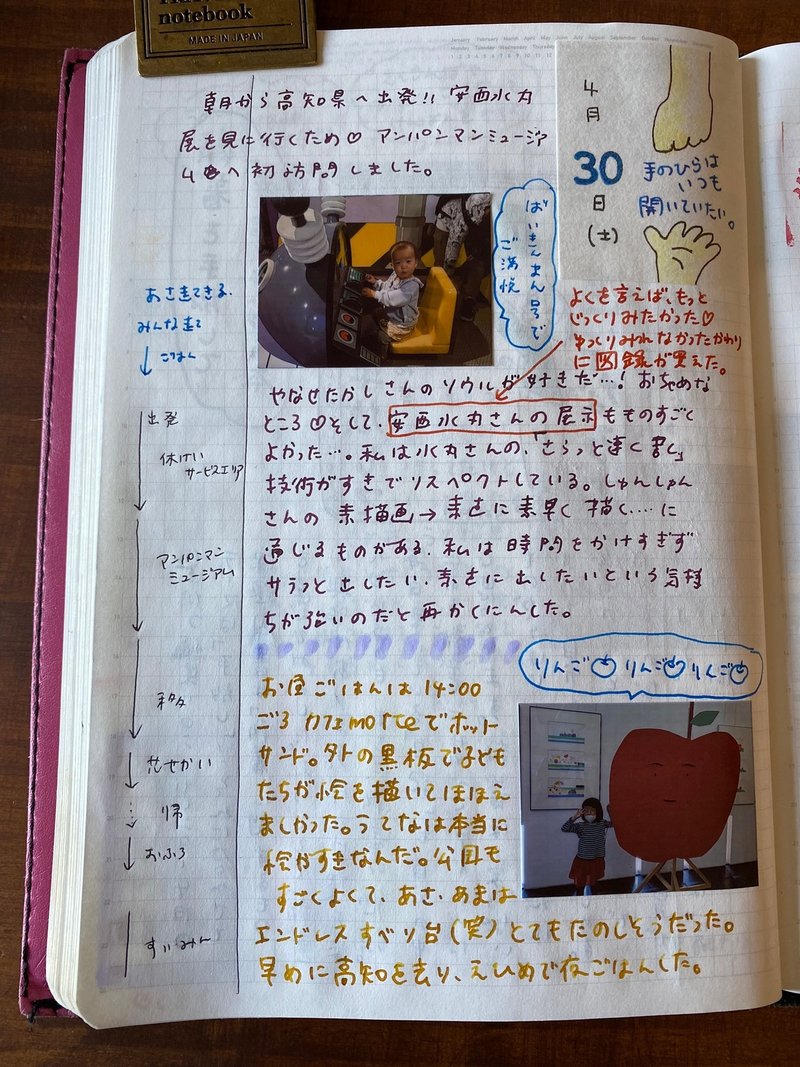 notebook
MADE IN JAPAN
January February March April May June July August September October
Monday Tuesday Wednesday Thursday
朝から高知県へ出発!! 安西水丸
展を見に行くため♡ アンパンマンミュージア
ムへ初訪問しました。
4月
30
日
(土)
手のひらは
いつも
開いていたい。
ばいきんまん号で
ご満悦
よくを言えば、もっと
じっくりみたかった♡
ゆっくりみれなかったかわり
に図録が買えた。
あさ走てきる。
みんな起
↓ ごはん
出発
休けい
サービスエリア
アンパンマン
ミュージアム
帰
おふろ
すいみん
やなせたかしさんのソウルが好きだ…! おちゃめな
ところ♡そして、安西水丸さんの展示もものすごく
よかった…。私は水丸さんの、「さらっと速く書く」
技術がすきでリスペクトしている。しゅんしゅん
さんの 素描画→素直に素早く描く…に
通じるものがある。私は時間をかけすぎず
サラっと出したい、素直に出したいという気持
ちが強いのだと再かくにんした。
りんご りんご りんご
お昼ごはんは14:00
ごろ カフェmorteでホット
サンド。外の黒板で子ども
たちが絵を描いてほほえ
ましかった。うてなは本当に
絵がすきなんだ。公園も
すごくよくて、あさ、あまは
エンドレスすべり台(笑)とてもたのしそうだった。
早めに高知を去り、えひめで夜ごはんした。